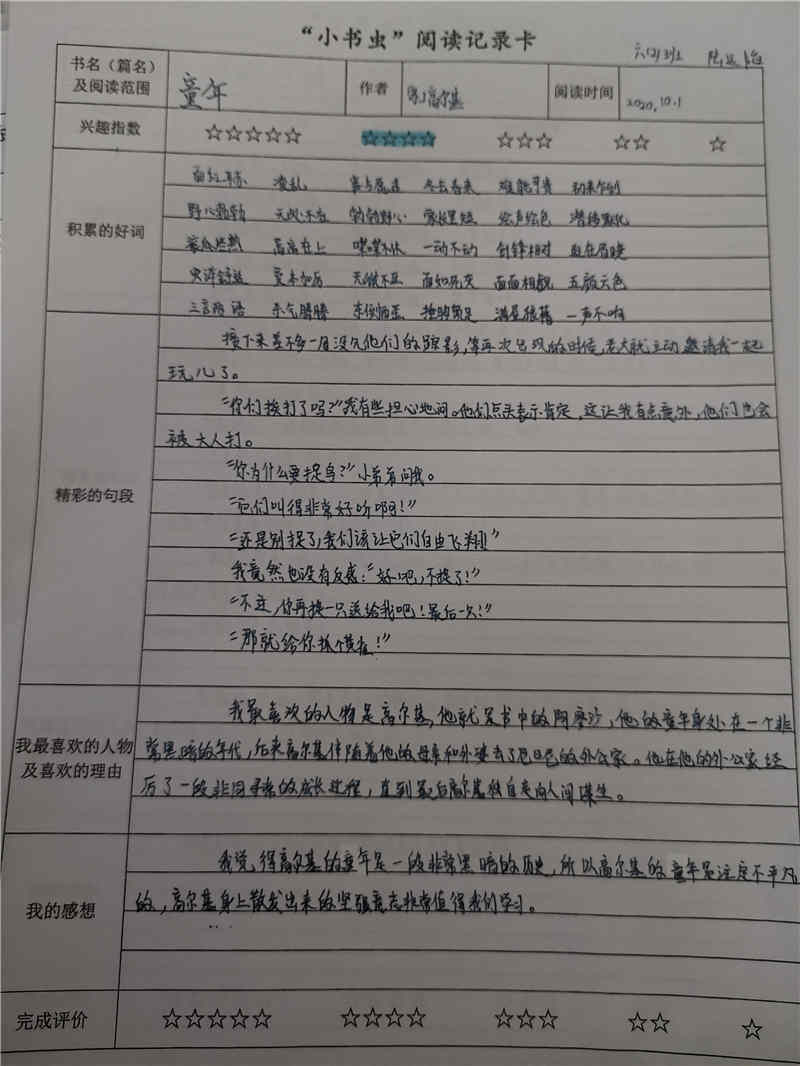 “小书虫”阅读记录卡
六(2)班
书名（篇名）及阅读范围 童年 作者 高尔基 阅读时间 2020.10.1
兴趣指数 ☆☆☆☆☆ ☆☆☆☆ ☆☆☆ ☆☆ ☆
积累的好词
面红耳赤 凌乱 冬去春来 难能可贵
野心勃勃 无处不在 勃勃野心 家长里短 绘声绘色 潜移默化
滚瓜烂熟 高高在上 喋喋不休 一动不动 针锋相对 血在眉睫
变本加厉 无微不至 面如死灰 面面相觑 五颜六色
三言两语 杀气腾腾 捶胸顿足 满屋狼藉 一声不响
精彩的句段
接下来差不多一周没见他们的踪影，等再次出现的时候，老大就主动邀请我一起
玩儿了。
“你们挨打了吗？”我有些担心地问。他们点头表示肯定，这让我有点意外，他们也会
被大人打。
“你为什么要捉鸟？”小弟弟问我。
“它们叫得非常好听啊！”
“还是别捉了，我们该让它们自由飞翔！”
我竟然也没有反感：“好吧，不捉了！”
“不过，你再捉一只送给我吧！最后一次！”
“那就给你抓个黄雀！”
我最喜欢的人物及喜欢的理由
我最喜欢的人物是高尔基，他就是书中的阿廖沙，他的童年身处在一个非
常黑暗的年代，后来高尔基伴随着他的母亲和外婆去了自己的外公家。他在他的外公家经
历了一段非同寻常的成长过程，直到最后高尔基独自走向人间谋生。
我的感想
我觉得高尔基的童年是一段非常黑暗的历史，所以高尔基的童年是注定不平凡
的，高尔基身上散发出来的坚强意志非常值得我们学习。
完成评价 ☆☆☆☆☆ ☆☆☆☆ ☆☆☆ ☆☆ ☆